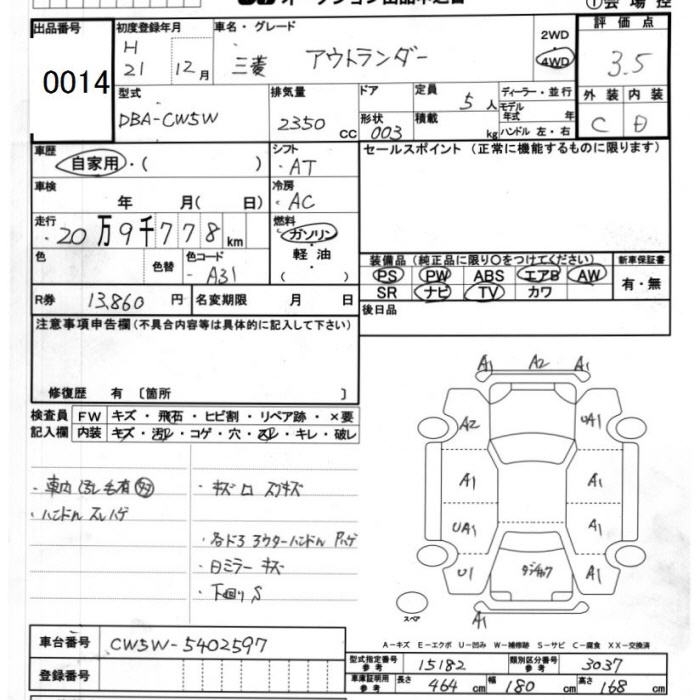 オークション出品申込書
①会場控
出品番号
0014
初度登録年月
H
21
12月
車名・グレード
三菱 アウトランダー
2WD
4WD
評価点
3.5
外装 内装
C D
型式
DBA-CW5W
排気量
2350 cc
ドア
形状
003
定員
5人
積載
kg
ディーラー・並行
モデル年式 年
ハンドル 左・右
車歴
自家用・( )
車検
年 月( 日)
走行
20万9千778km
色
色替
色コード
A31
シフト
・AT
冷房
・AC
燃料
ガソリン
軽油
( )
セールスポイント(正常に機能するものに限ります)
装備品(純正品に限り○をつけてください)
PS PW ABS エアB AW
SR ナビ TV カワ
新車保証書
有・無
R券 13,860円
名変期限 月 日
後日品
注意事項申告欄(不具合内容等は具体的に記入して下さい)
修復歴 有〔箇所 〕
検査員記入欄
FW キズ・飛石・ヒビ割・リペア跡・×要
内装 キズ・汚レ・コゲ・穴・スレ・キレ・破レ
・車内 汚レ 毛有
・ハンドル スレハゲ
・キズ 口 スリキズ
・各ドア アウターハンドル Pハゲ
・日ミラー キズ
・下回り S
A1 A2 A1
A2 UA1
A1 A1
UA1 A1
U1 A1
A1
スペア
A-キズ E-エクボ U-凹み W-補修跡 S-サビ C-腐食 XX-交換済
車台番号 CW5W-5402597
登録番号
型式指定番号 参考 15182
類別区分番号 参考 3037
車庫証明用 参考 長さ 464cm 幅 180cm 高さ 168cm